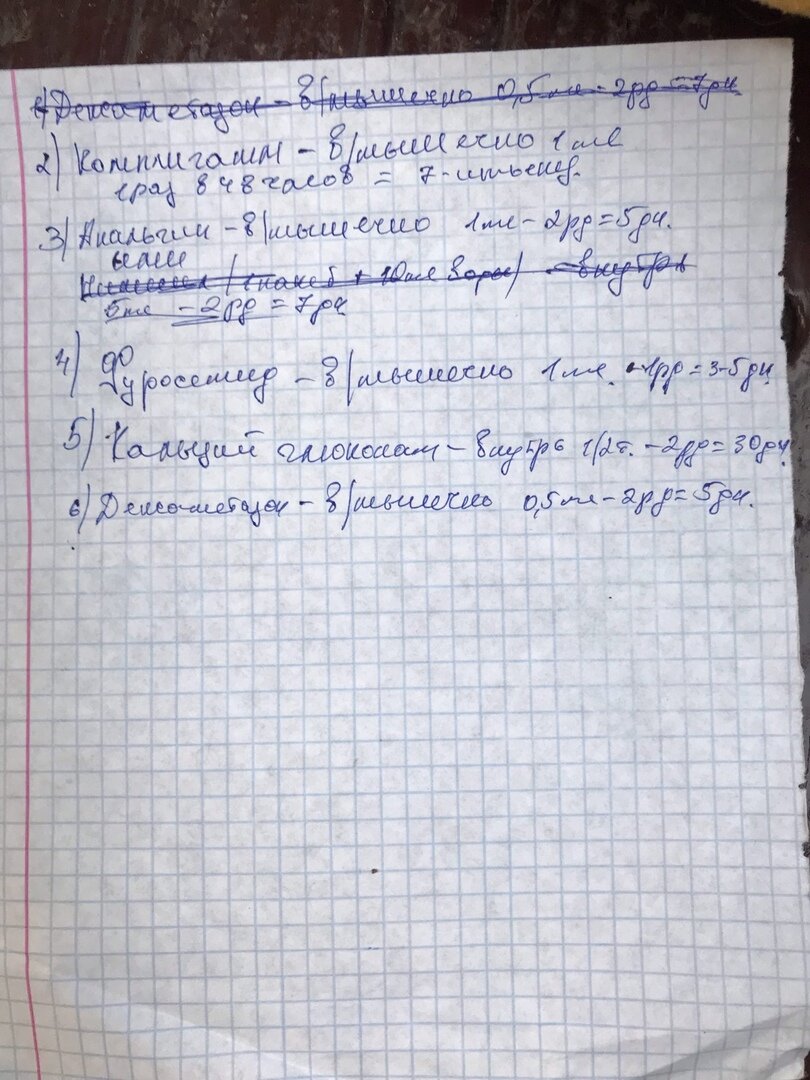 1) Дексаметазон - в/мышечно 0,5 мл - 2рд = 7дн
2) Комплигам - в/мышечно 1 мл
1раз в 48 часов = 7-инъекц.
3) Анальгин - в/мышечно 1мл - 2рд = 5дн.
или
(1 пакет + 10мл воды) - внутрь
5мл - 2рд = 7дн
4) Фуросемид - в/мышечно 1 мл. - 1рд = 3-5дн
5) Кальций глюконат - внутрь 1/2т. - 2рд = 30дн.
6) Дексометазон - в/мышечно 0,5мл - 2рд = 5дн.